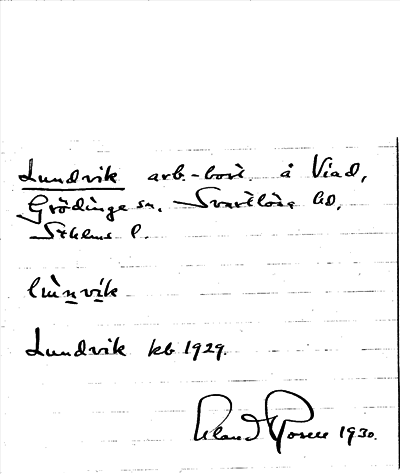 Lundvik arb.-bost. å Viad,
Grödinge sn. Svartlösa hd.
Sthlms l.
lùnvik
Lundvik kb 1929.
1930.